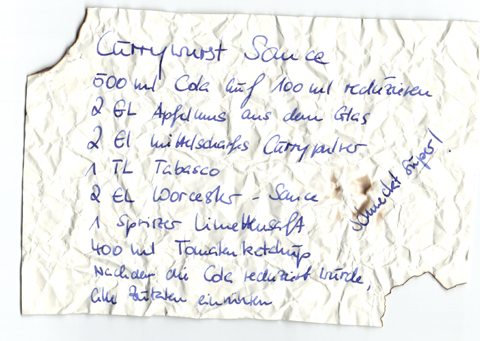 Currywurst Sauce
500 ml Cola auf 100 ml reduzieren
2 EL Apfelmus aus dem Glas
2 El mittelscharfes Currypulver
1 TL Tabasco
2 EL Worcester-Sauce
1 Spritzer Limettensaft
400 ml Tomatenketchup
Nachdem die Cola reduziert wurde,
alle Zutaten einrühren
schmeckt super!